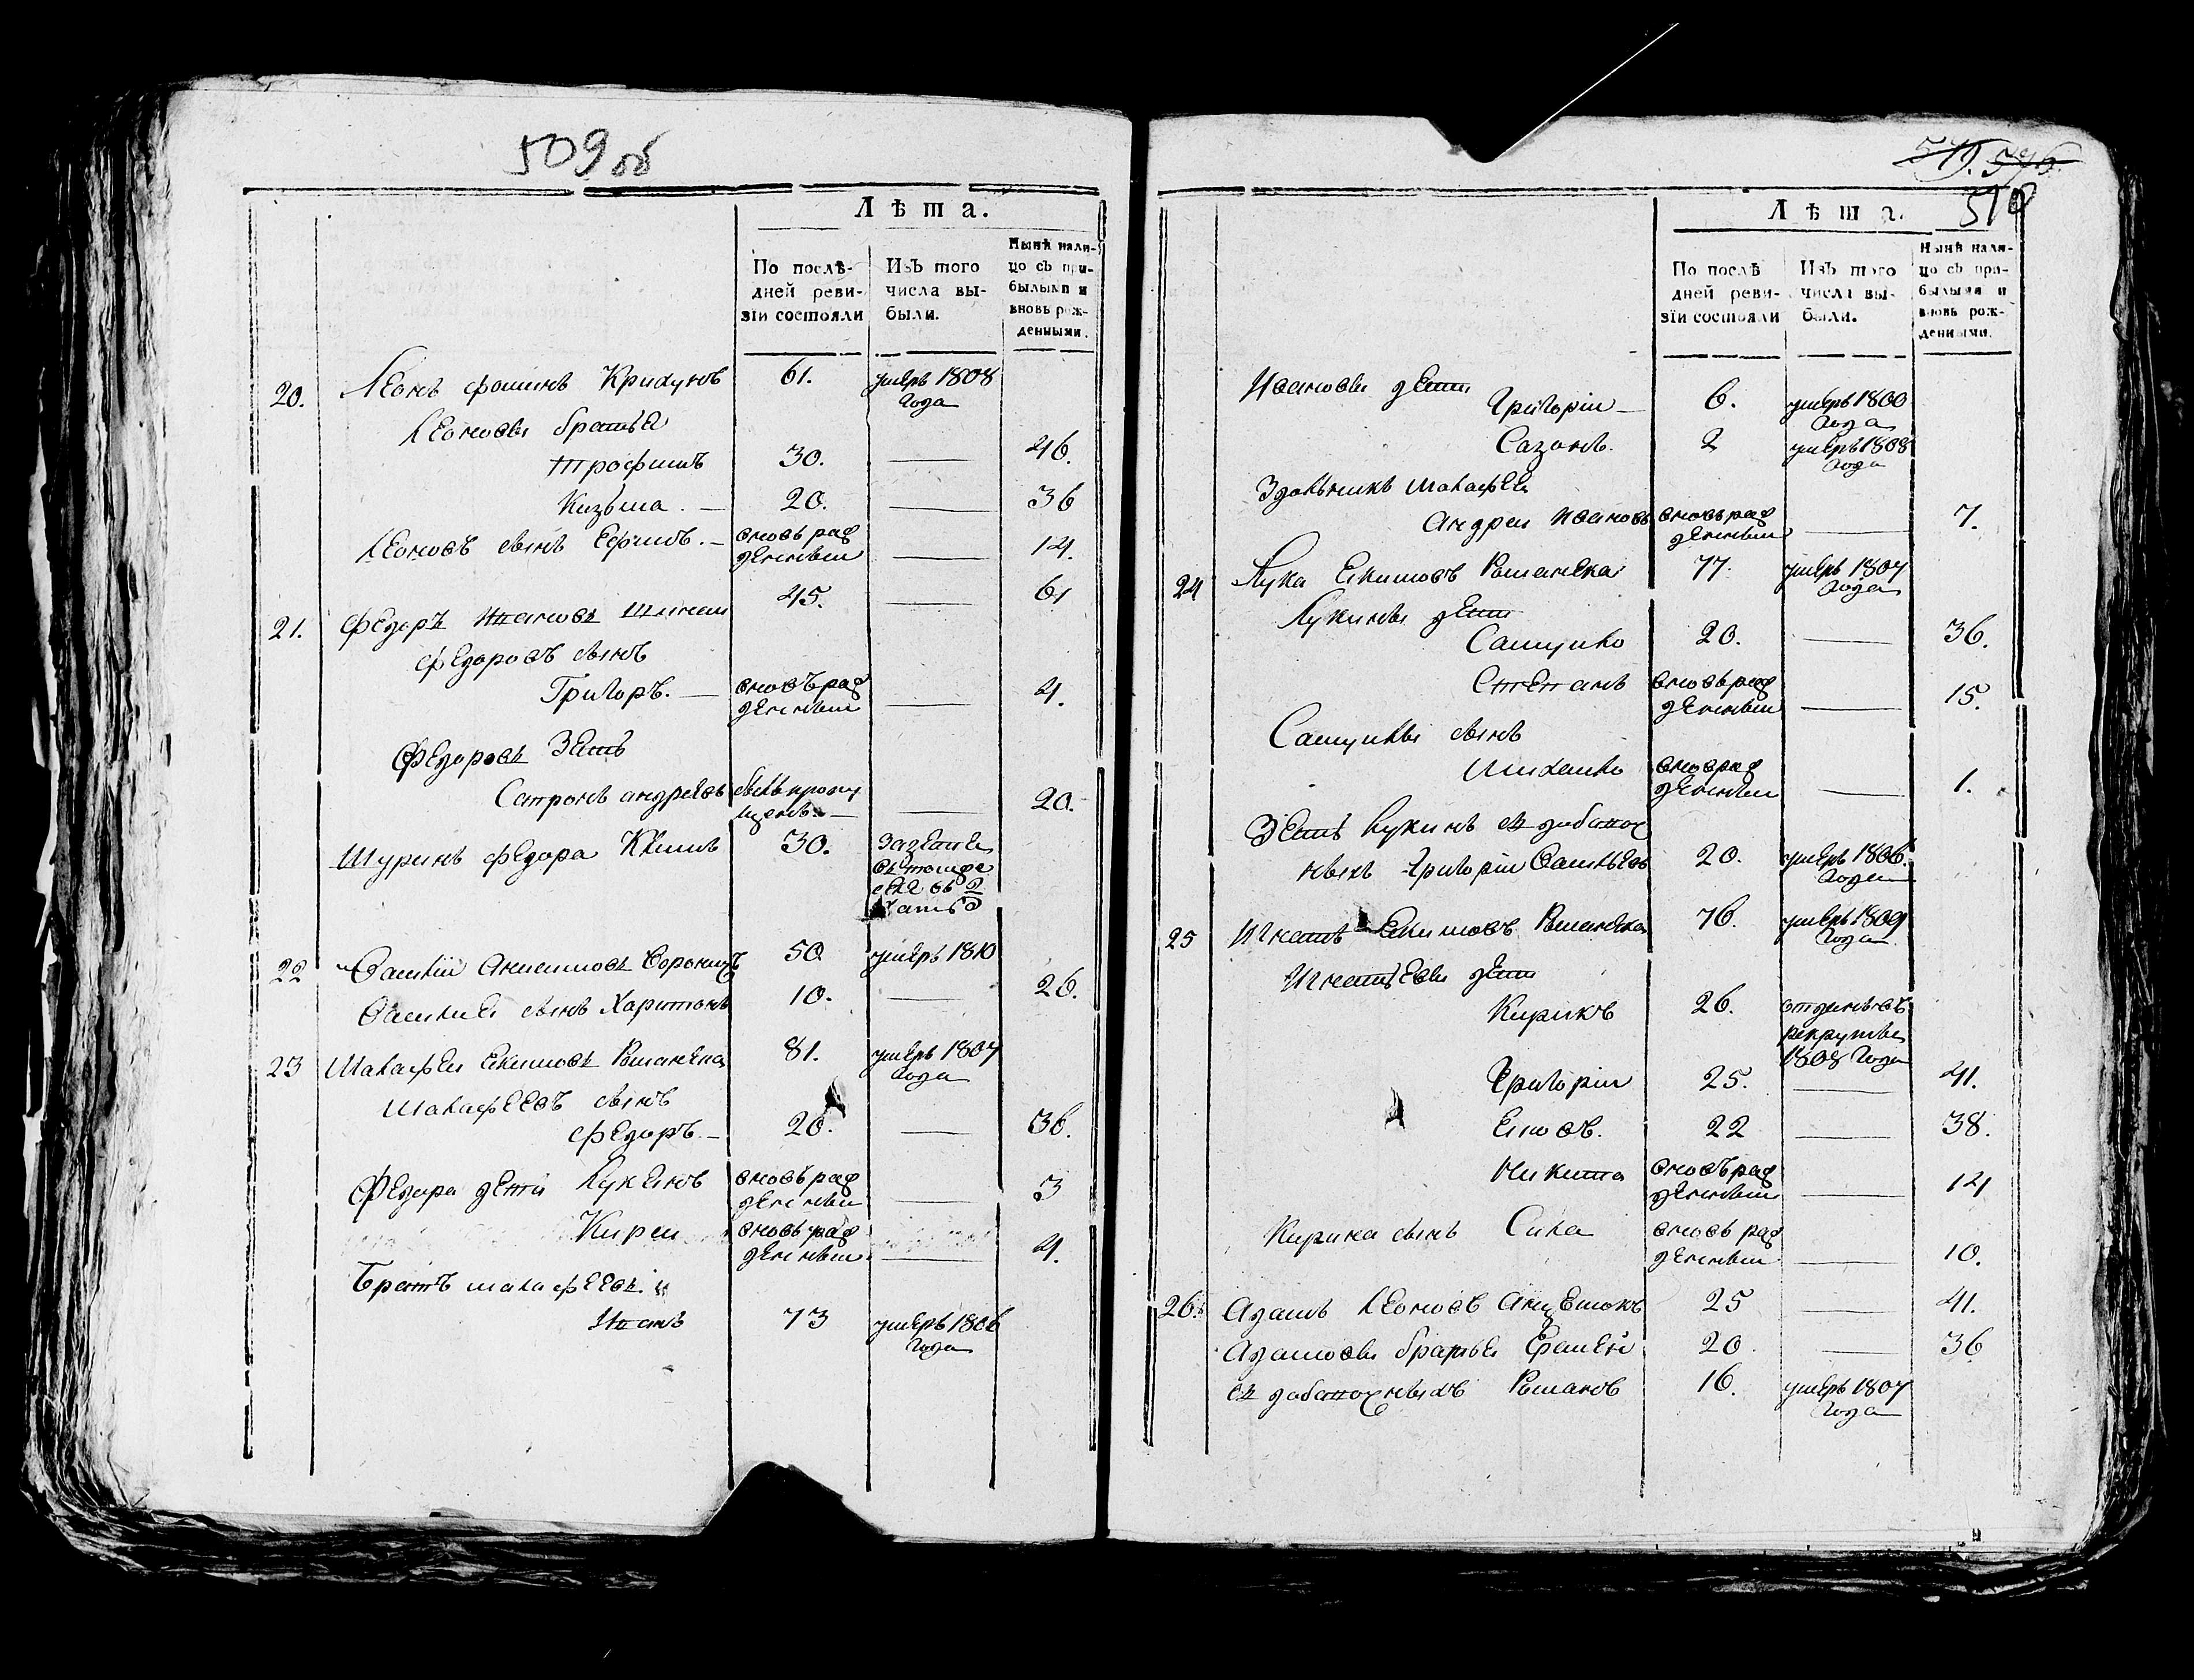 509 об
Лѣта.
По послѣ-
дней реви-
зіи состояли
Изъ того
числа вы-
были.
Нынѣ нали-
цо съ при-
былыми и
вновь рож-
денными.
20. Леонъ фоминъ 61. умеръ 1808
года
Леоновы братья
трофимъ 30. — 46.
Кизьма. — 20. — 36
Леоновъ сынъ Ефимъ. — вновь рож
денный — 14.
21. федоръ 45. — 61
федоровъ сынъ
Григоръ. — вновь рож
денный — 4.
федоровъ Зеть
андреевъ былъ пропу
щенъ. — — 20.
Шуринъ федора 30.
22 Василий Сорокинъ 50 умеръ 1810
Василия сынъ Харитонъ 10. — 26.
23 Малафеи екимовъ Романека 81. умеръ 1807
года
Малафеевъ сынъ
федоръ. — 20. — 36.
федора дети Лукеянъ вновь рож
денный — 3
Киреи вновь рож
денный — 4.
Братъ малафеевъ
Иванъ 73 умеръ 1806
года
579. 576.
510
Лѣта.
По послѣ
дней реви-
зіи состояли
Изъ того
числа вы-
были.
Нынѣ нали-
цо съ при-
былыми и
вновь рож-
денными.
Ивановы дети
Григоріи — 6. умеръ 1800
года
Сазонъ. 2 умеръ 1808
года
малафея
Андреи Ивановъ вновь рож
денный — 7.
24 Лука екимовъ Романека 77. умеръ 1807
года
Лукины дети
Самуило 20. — 36.
Степанъ вновь рож
денный — 15.
Самуилы сынъ
Михаило внов рож
денный — 1.
Зеть лукинъ
Григоріи Васильевъ 20. умеръ 1806.
года
25 Игнать Екимовъ Романека 76. умеръ 1809
года
Игнатьевы дети
Кирикъ 26. отданъ въ
рекруты
1808 года
Григоріи 25. — 41.
22 — 38.
Никита вновь рож
денный — 14
Кирика сынъ Сила вновь рож
денный — 10.
26. Адамъ Леоновъ 25 — 41.
Адамовы братья 20. — 36
Романъ 16. умеръ 1807
года